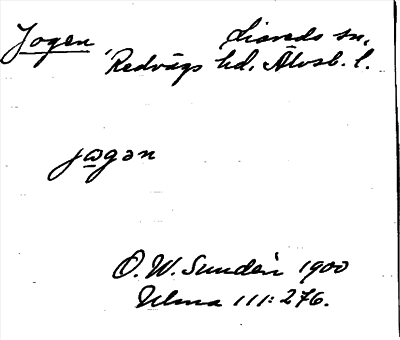 Jogen
Liareds sn.
Redvägs hd. Älvsb. l.
jogən
O. W. Sundén 1900
Ulma 111:276.